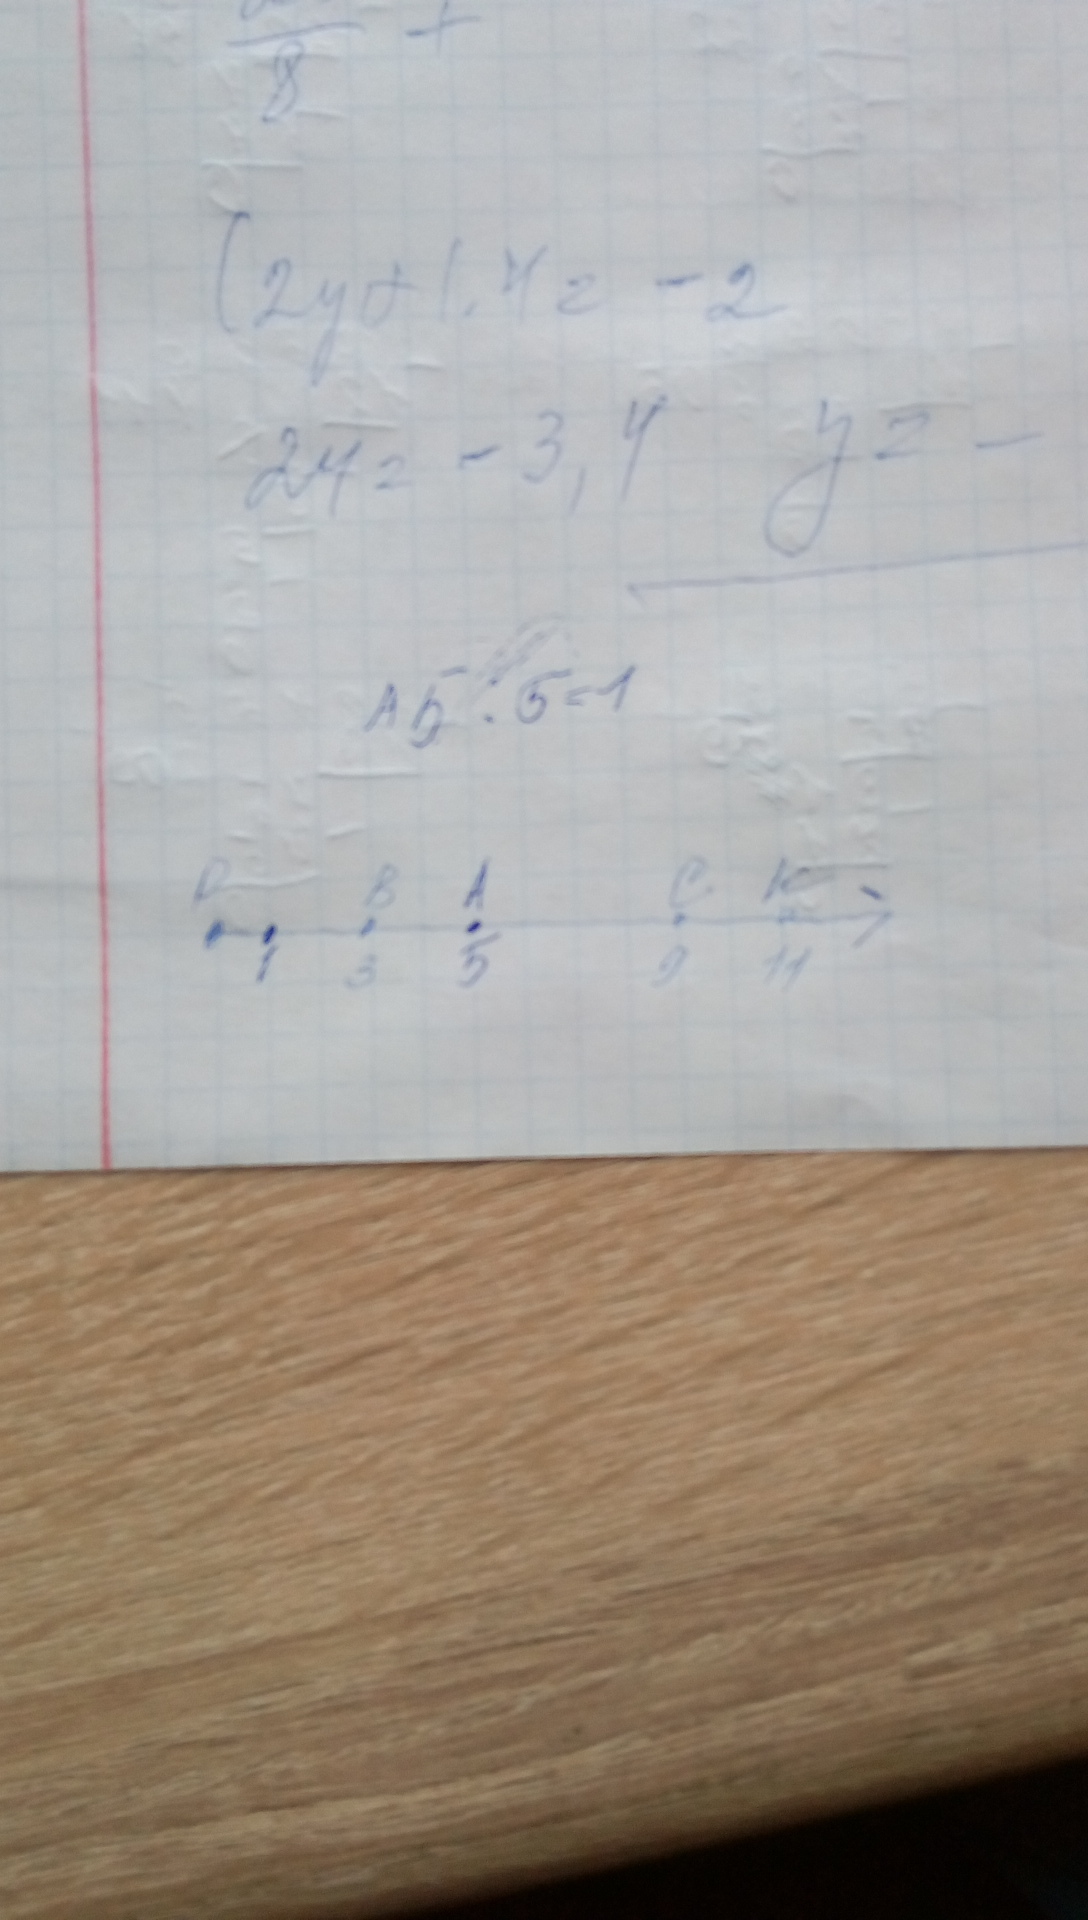 8 +
(2y + 1,4 = -2
2y = -3,4 y = -
A 5 : 5 = 1
D B A C K
1 3 5 9 11